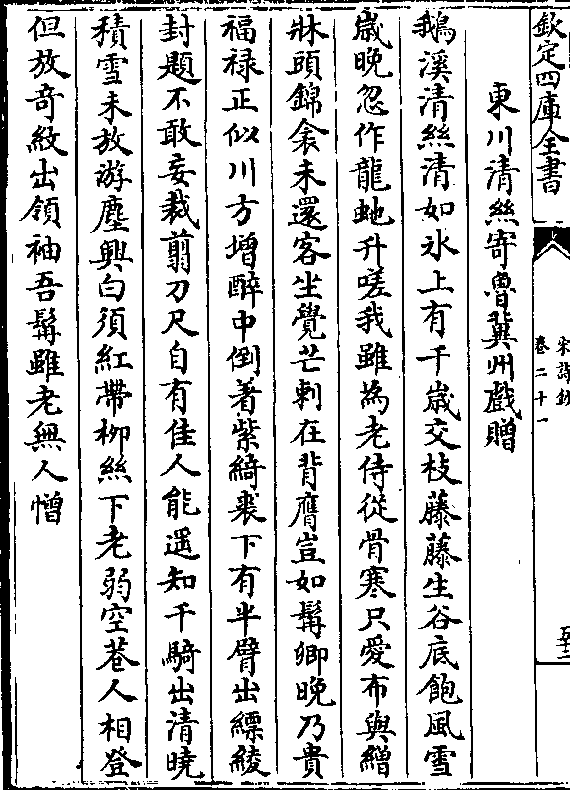 欽定四庫全書
宋詩鈔
卷二十一
五十二
東川清絲寄魯冀州戲贈
鵝溪清絲清如氷上有千歳交枝藤藤生谷底飽風雪
歳晚忽作龍虵升嗟我雖為老侍從骨寒只愛布與繒
牀頭錦衾未還客坐覺芒刺在背膺豈如髯卿晚乃貴
福禄正似川方增醉中倒着紫綺裘下有半臂出縹綾
封題不敢妄裁翦刀尺自有佳人能遥知千騎出清曉
積雪未放游塵興白須紅帶栁絲下老弱空巷人相登
但放竒紋出領袖吾髯雖老無人憎